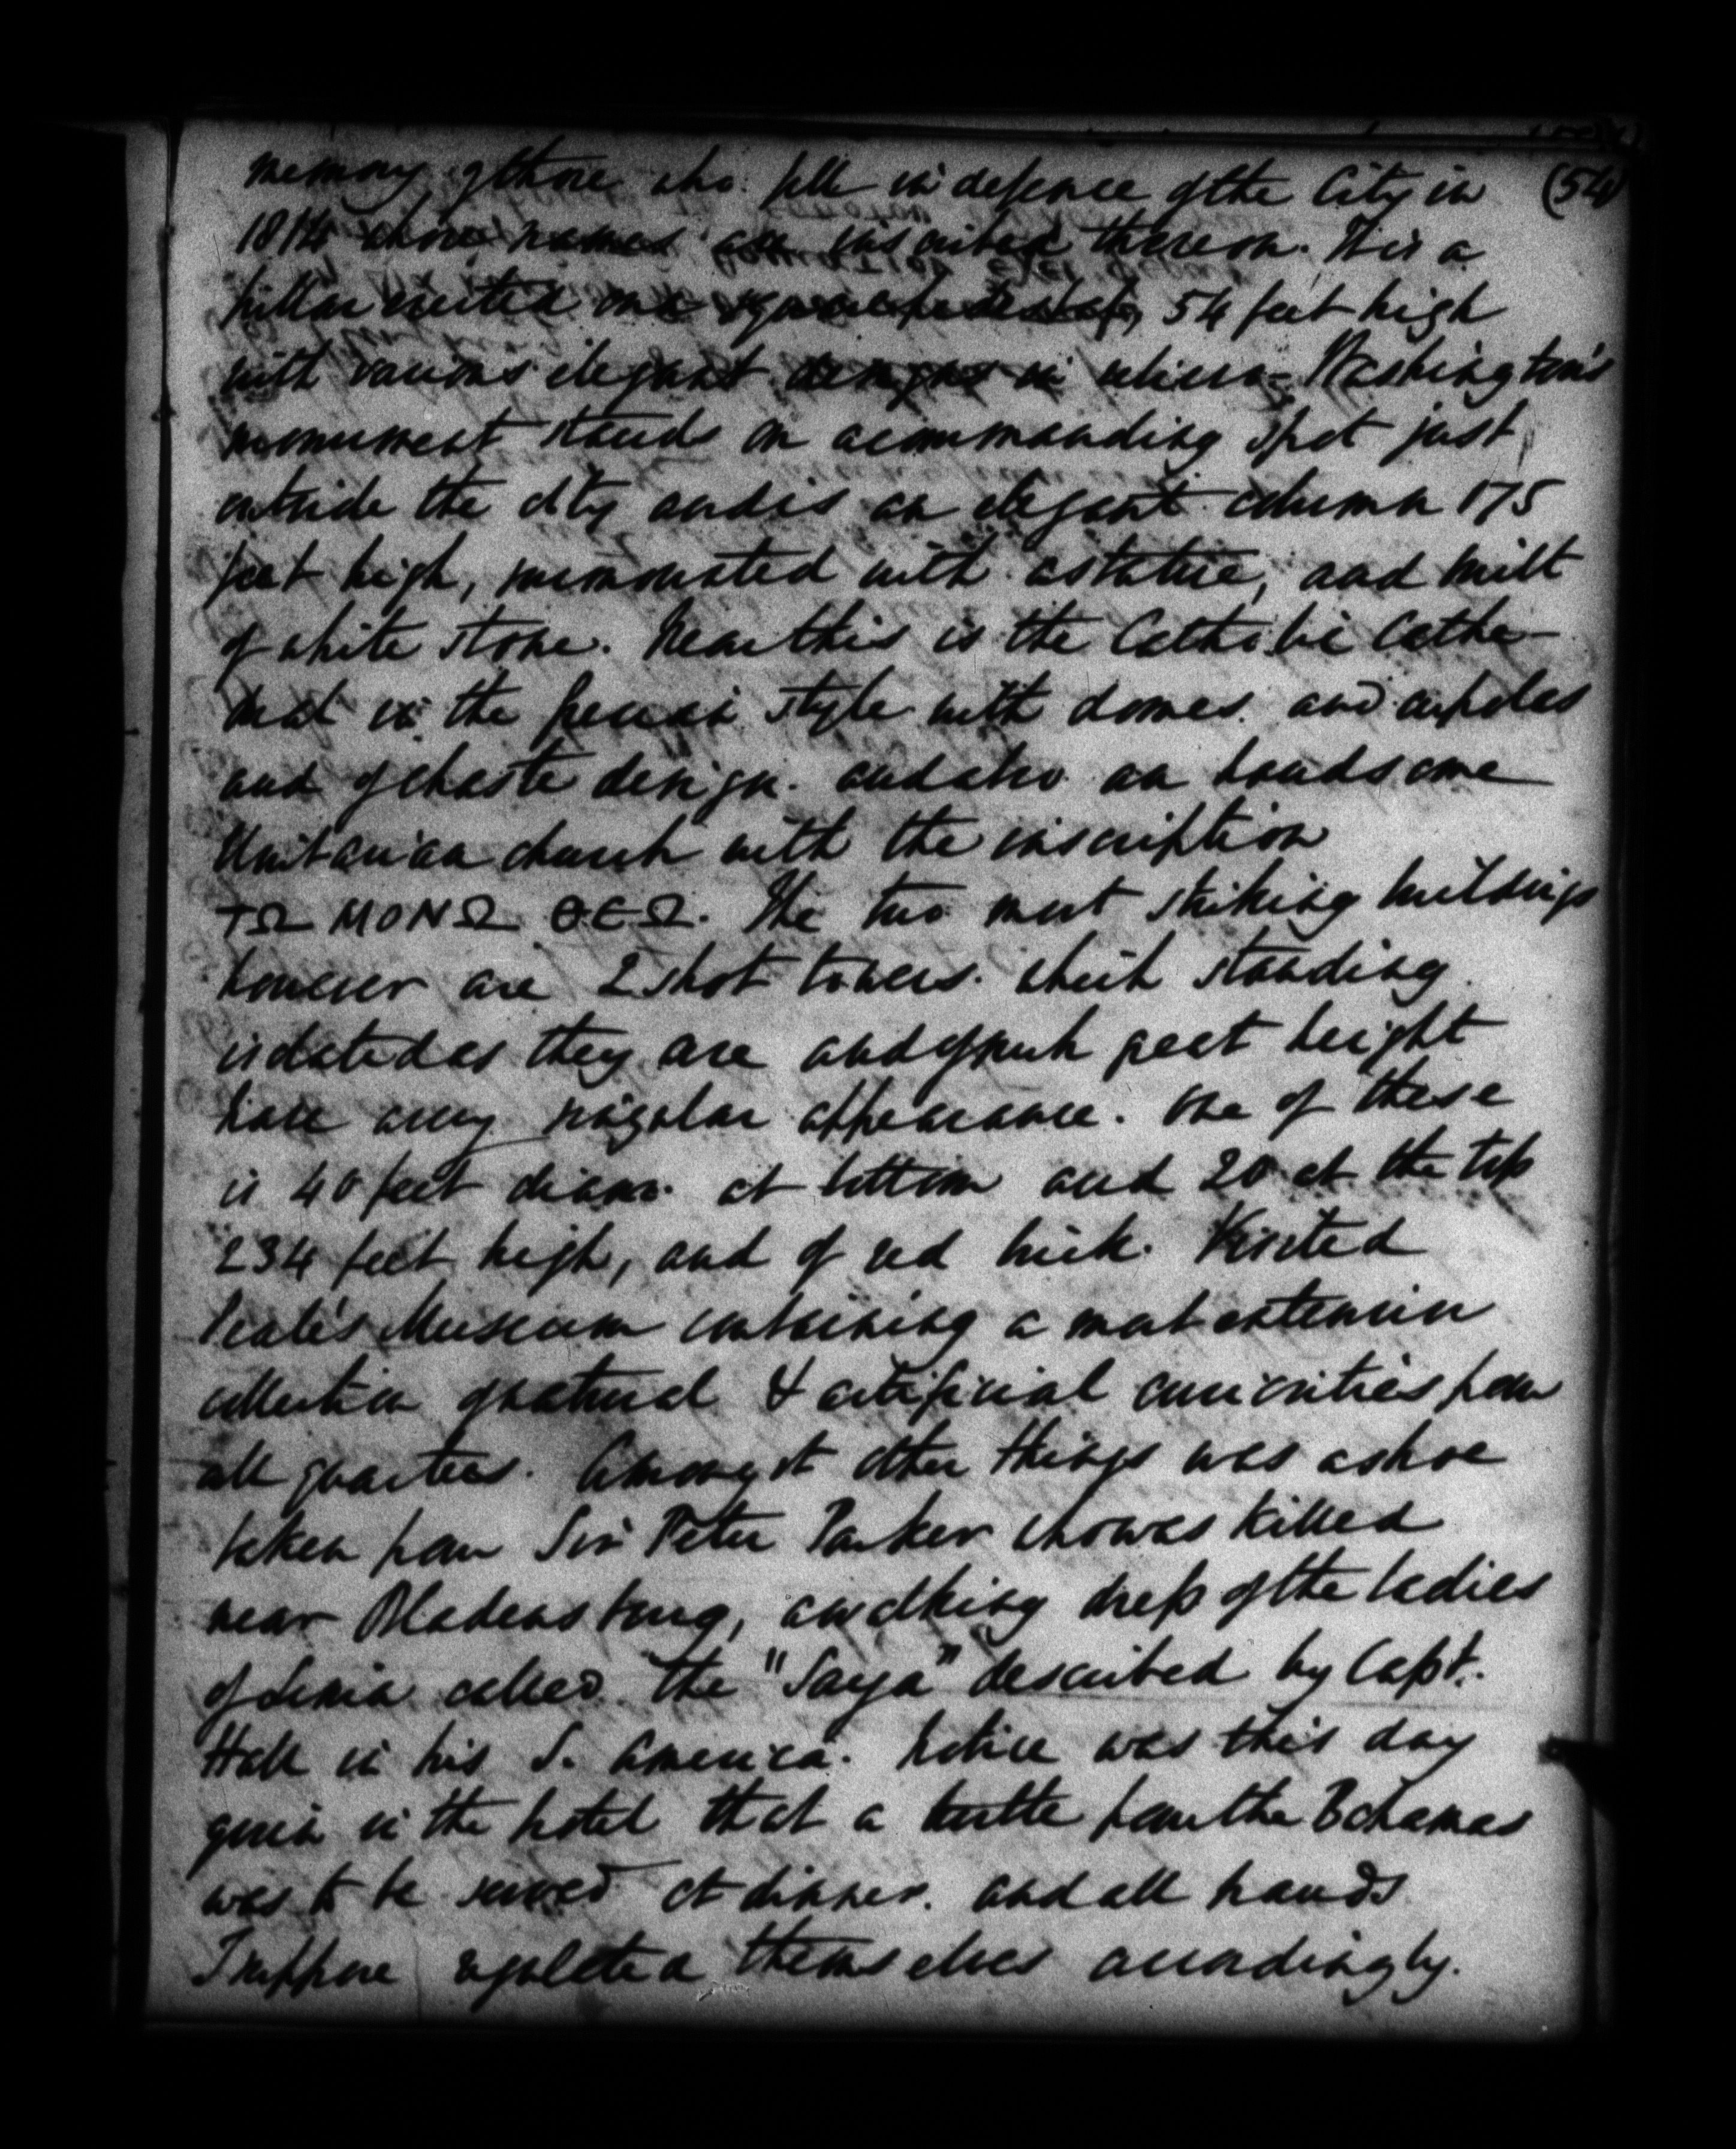 memory of those who fell in defence of the City in (54)
1814 whose names are inscribed thereon. It is a
pillar erected on a square pedestal, 54 feet high
with various elegant designs in relievo – Washington's
monument stands on a commanding spot just
outside the city and is an elegant column 175
feet high, surmounted with a statue, and built
of white stone. Near this is the Catholic Cathe-
dral in the Grecian style with domes and cupolas
and of chaste design. and also an handsome
Unitarian church with the inscription
ΤΩ ΜΟΝΩ ΘΕΩ. The two most striking buildings
however are 2 shot towers. which standing
isolated as they are and of such great height
have a very singular appearance. One of these
is 40 feet diamr. at bottom and 20 at the top
234 feet high, and of red brick. Visited
Peale's Museum containing a most extensive
collection of natural & artificial curiosities from
all quarters. Amongst other things was a shoe
taken from Sir Peter Parker who was killed
near Bladensburg, a walking dress of the ladies
of Lima called the "Saya" described by Capt.
Hall in his S. America. Notice was this day
given in the hotel that a turtle from the Bahamas
was to be served at dinner. and all hands
I suppose regulated themselves accordingly.